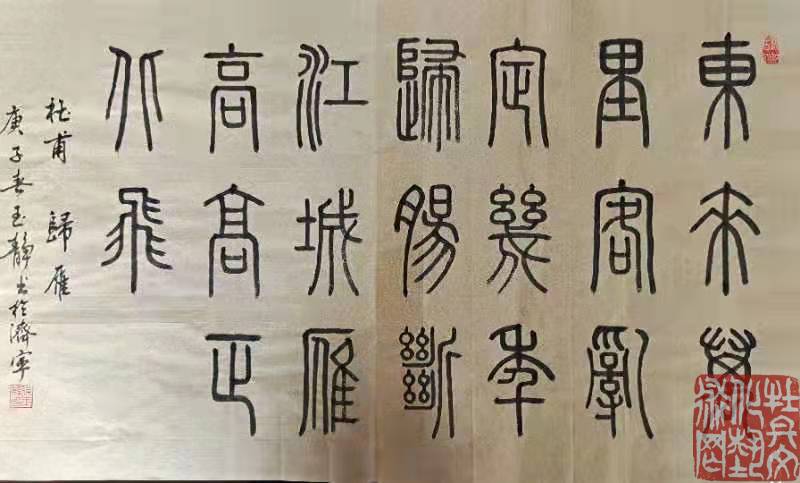 東來萬
里客亂
定幾年
歸腸斷
江城雁
高高正
北飛
杜甫 歸雁
庚子春玉靜书於濟寧